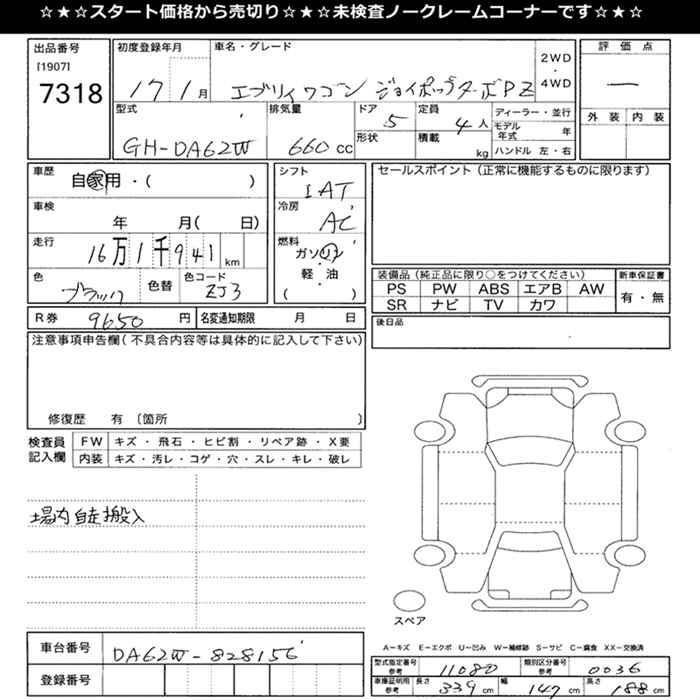 ☆★☆スタート価格から売切り☆★☆未検査ノークレームコーナーです☆★☆
出品番号 初度登録年月 車名・グレード 2WD 評価点
[1907] ・
7318 17 1月 エブリイワゴン ジョイポップターボPZ 4WD —
型式 排気量 ドア 定員 ディーラー・並行 外装 内装
GH-DA62W 660cc 5 4人 モデル年式 年
形状 積載 kg ハンドル 左・右
車歴 自家用・( ) シフト IAT セールスポイント(正常に機能するものに限ります)
車検 年 月( 日) 冷房 AC
走行 16万1千941km 燃料 ガソリン・軽油 ( )
色 ブラック 色替 色コード ZJ3
装備品(純正品に限り○をつけてください) 新車保証書
PS PW ABS エアB AW 有・無
SR ナビ TV カワ
R券 9650円 名変通知期限 月 日 後日品
注意事項申告欄(不具合内容等は具体的に記入して下さい)
修復歴 有 〔箇所 〕
検査員記入欄 FW キズ・飛石・ヒビ割・リペア跡・X要
内装 キズ・汚レ・コゲ・穴・スレ・キレ・破レ
場内自走搬入
スペア
A−キズ E−エクボ U−凹み W−補修跡 S−サビ C−腐食 XX−交換済
車台番号 DA62W-828156
型式指定番号 参考 11080 類別区分番号 参考 0036
登録番号 車庫証明用 参考 長さ 339cm 幅 147cm 高さ 188cm